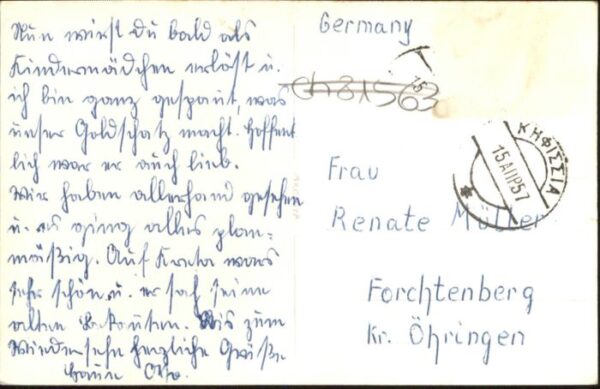 Nun wirst du bald als
Kindermädchen erlöst u.
ich bin ganz gespannt, was
unser Goldschatz macht. Hoffent
lich war er auch lieb.
Wir haben allerhand gesehen
u. es ging alles plan=
mäßig. Auf Kreta wars
sehr schön u. er sah seine
alten Bekannten. Bis zum
Wiedersehn herzliche Grüße
Germany
ch 81563
ΚΗΦΙΣΣΙΑ
15 ΑΠΡ 57
Frau
Renate Müller
Forchtenberg
Kr. Öhringen